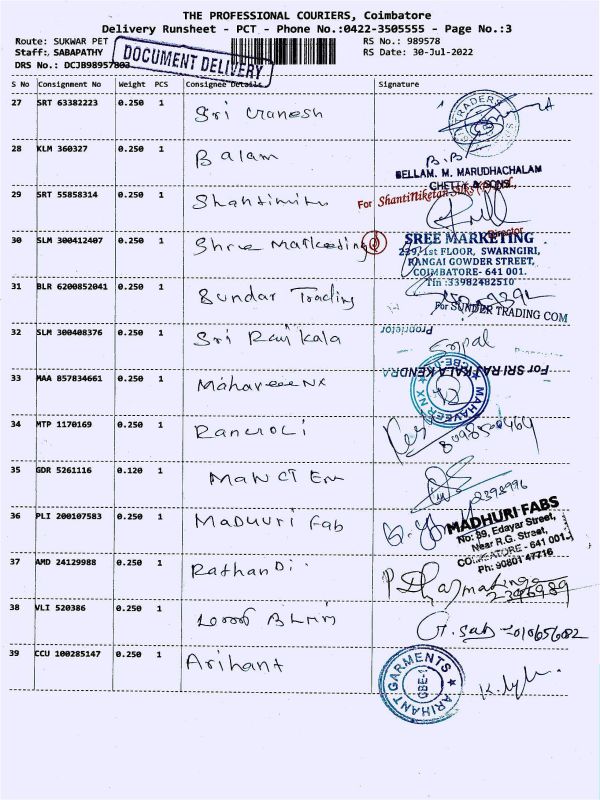 THE PROFESSIONAL COURIERS, Coimbatore
Delivery Runsheet - PCT - Phone No.:0422-3505555 - Page No.:3
Route: SUKWAR PET RS No.: 989578
Staff: SABAPATHY RS Date: 30-Jul-2022
DRS No.: DCJB98957803
DOCUMENT DELIVERY
S No Consignment No Weight PCS Consignee Details Signature
27 SRT 63382223 0.250 1 Sri Granesh
TRADERS
28 KLM 360327 0.250 1 Balam
B.B
BELLAM. M. MARUDHACHALAM
CHETTY & SONS
29 SRT 55858314 0.250 1 Shantiniku
For Shantiniketan Silks
Director
30 SLM 300412407 0.250 1 Shree Marketing
SREE MARKETING
239, 1st FLOOR, SWARNGIRI,
RANGAI GOWDER STREET,
COIMBATORE- 641 001.
Tin :33982482510
31 BLR 6200852041 0.250 1 Sundar Trading
For SUNDER TRADING COM
32 SLM 300408376 0.250 1 Sri Raj kala
Proprietor
Gopal
For SRI RAJ KALA KENDRA
33 MAA 857834661 0.250 1 Mahaveer NX
MAHAVEER NX
CBE-01
34 MTP 1170169 0.250 1
35 GDR 5261116 0.120 1
36 PLI 200107583 0.250 1 Maduuri Fab
MADHURI FABS
No: 39, Edayar Street,
Near R.G. Street,
COIMBATORE - 641 001.
Ph: 90801 47716
37 AMD 24129988 0.250 1 Rathan Di
38 VLI 520386 0.250 1
39 CCU 100285147 0.250 1 Arihant
ARIHANT GARMENTS
CBE-1